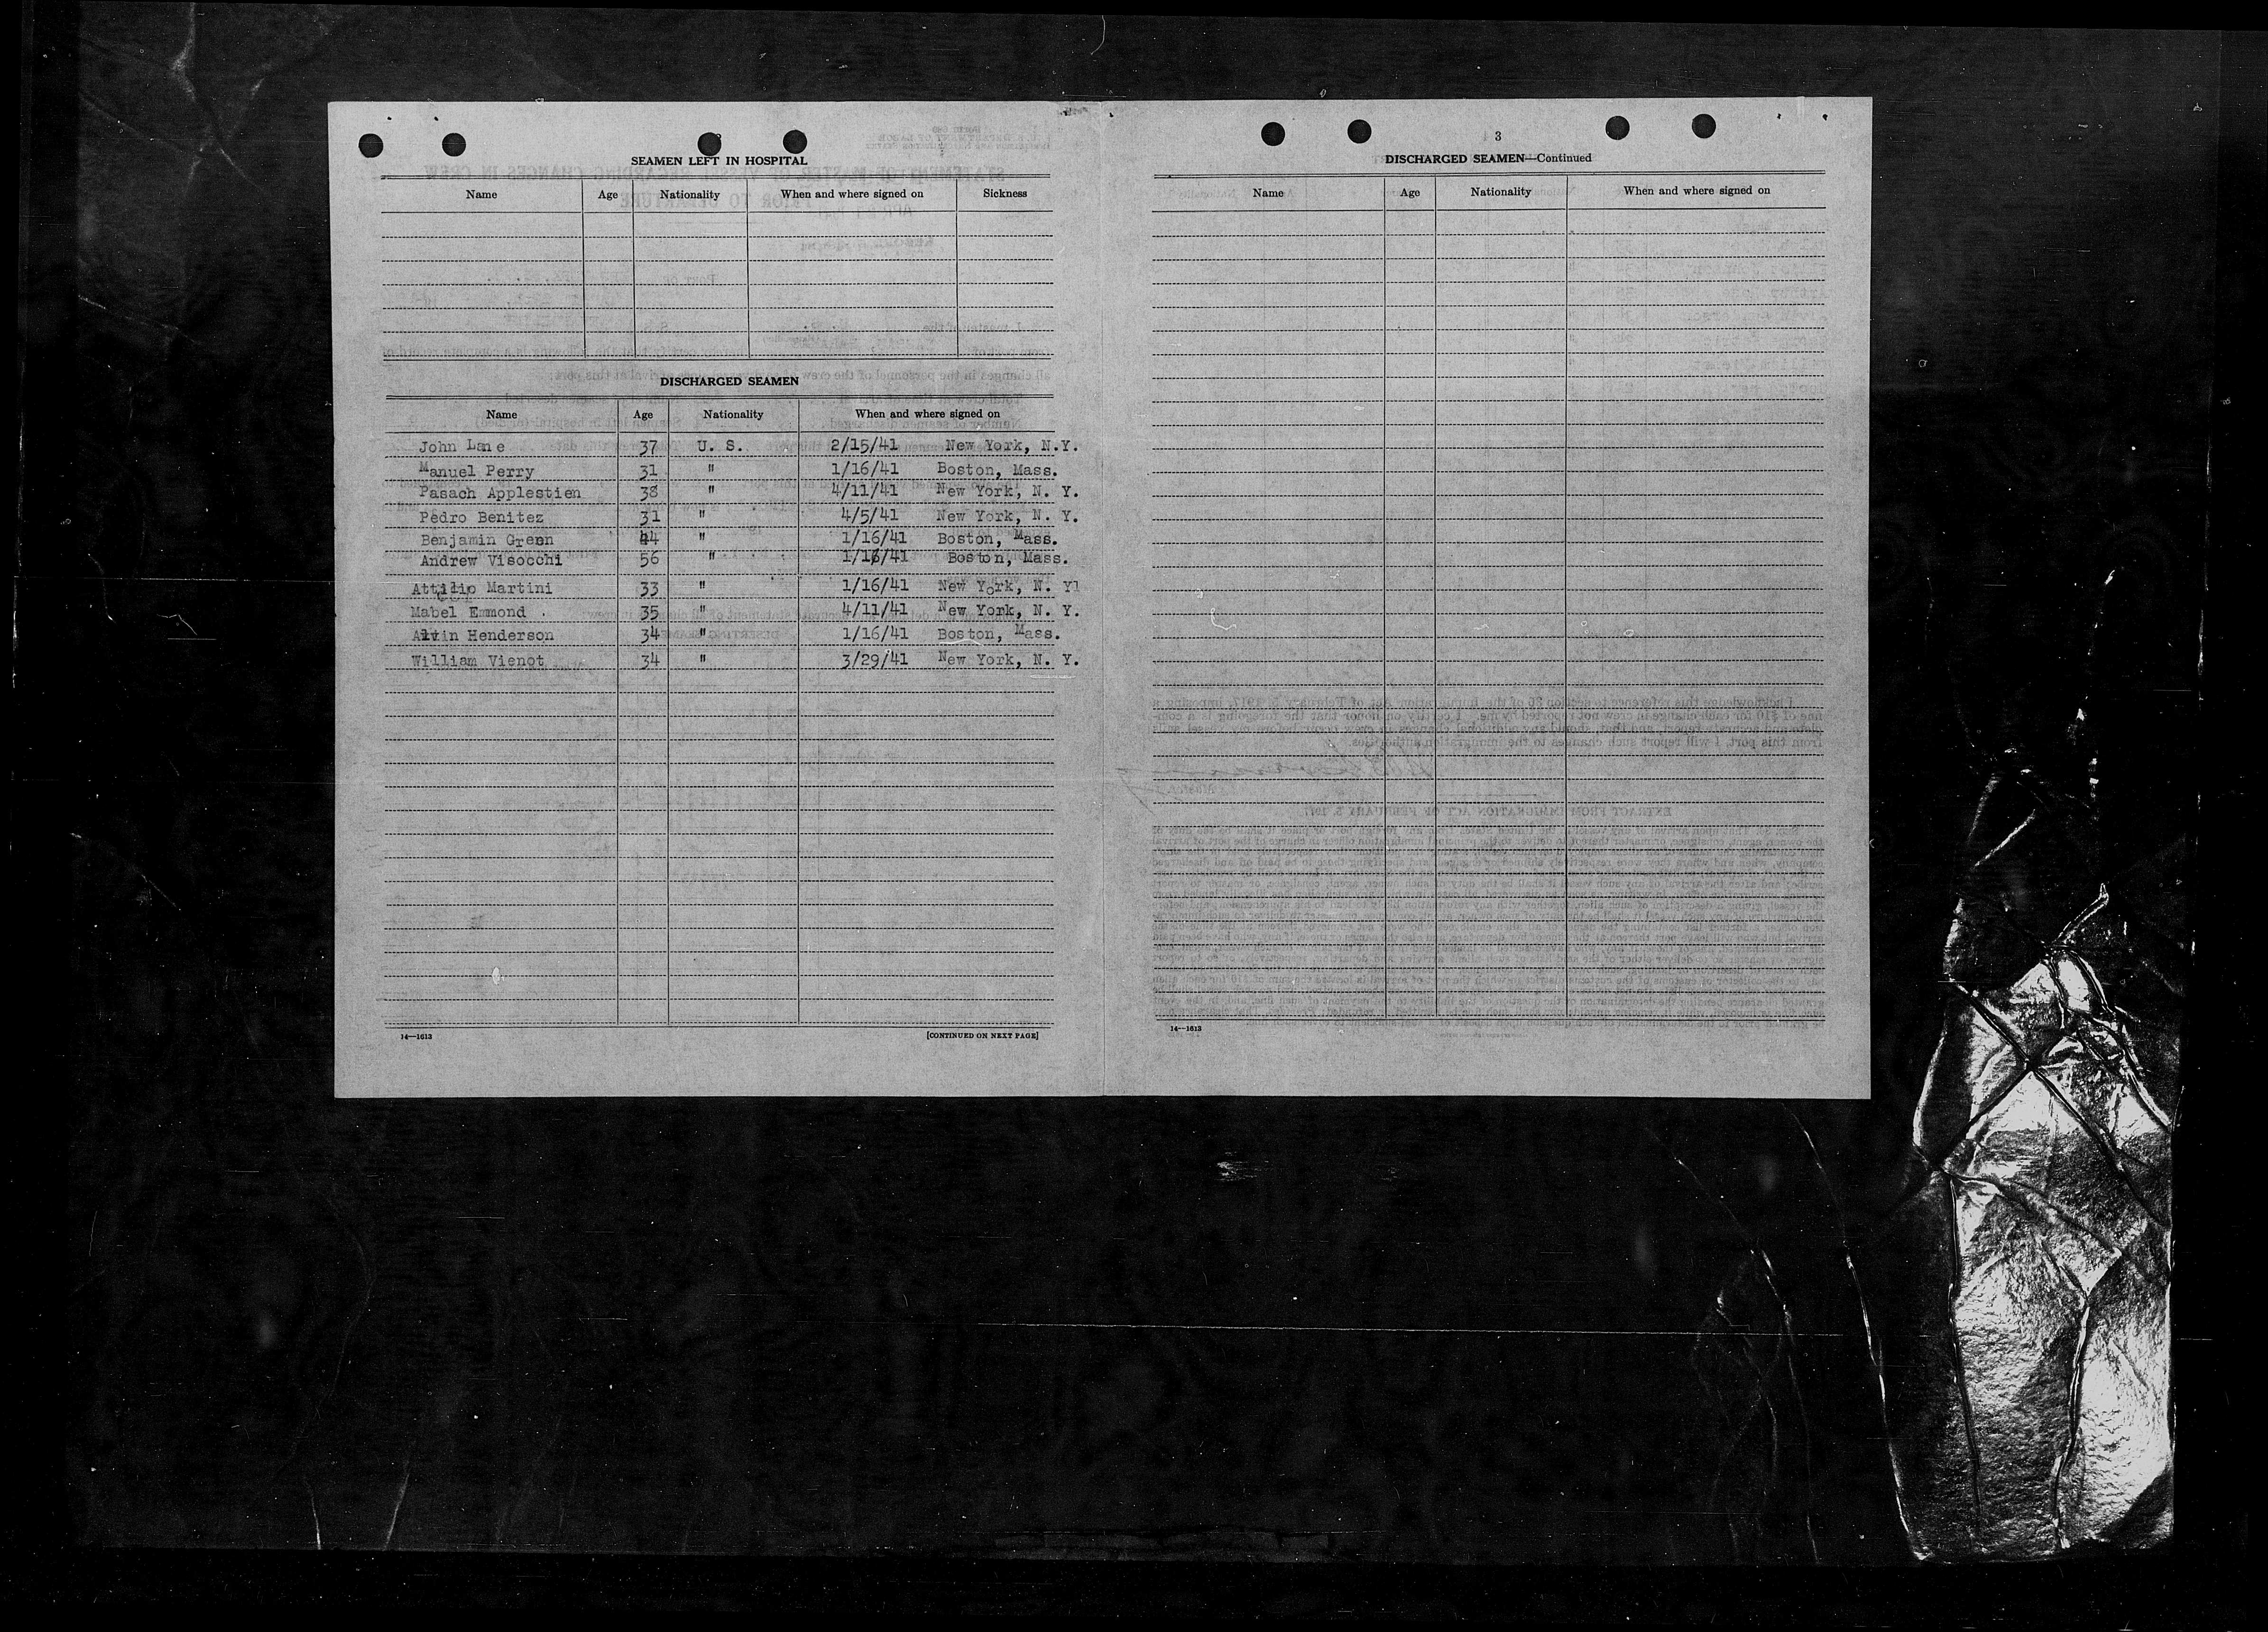 SEAMEN LEFT IN HOSPITAL
Name Age Nationality When and where signed on Sickness
DISCHARGED SEAMEN
Name Age Nationality When and where signed on
John Lane 37 U. S. 2/15/41 New York, N.Y.
Manuel Perry 31 " 1/16/41 Boston, Mass.
Pasach Applestien 38 " 4/11/41 New York, N. Y.
Pedro Benitez 31 " 4/5/41 New York, N. Y.
Benjamin Green 44 " 1/16/41 Boston, Mass.
Andrew Visocchi 56 " 1/16/41 Boston, Mass.
Attilio Martini 33 " 1/16/41 New York, N. Yl
Mabel Emmond . 35 " 4/11/41 New York, N. Y.
Alvin Henderson 34 " 1/16/41 Boston, Mass.
William Vienot 34 " 3/29/41 New York, N. Y.
14—1613 [CONTINUED ON NEXT PAGE]
3
DISCHARGED SEAMEN—Continued
Name Age Nationality When and where signed on
14—1613